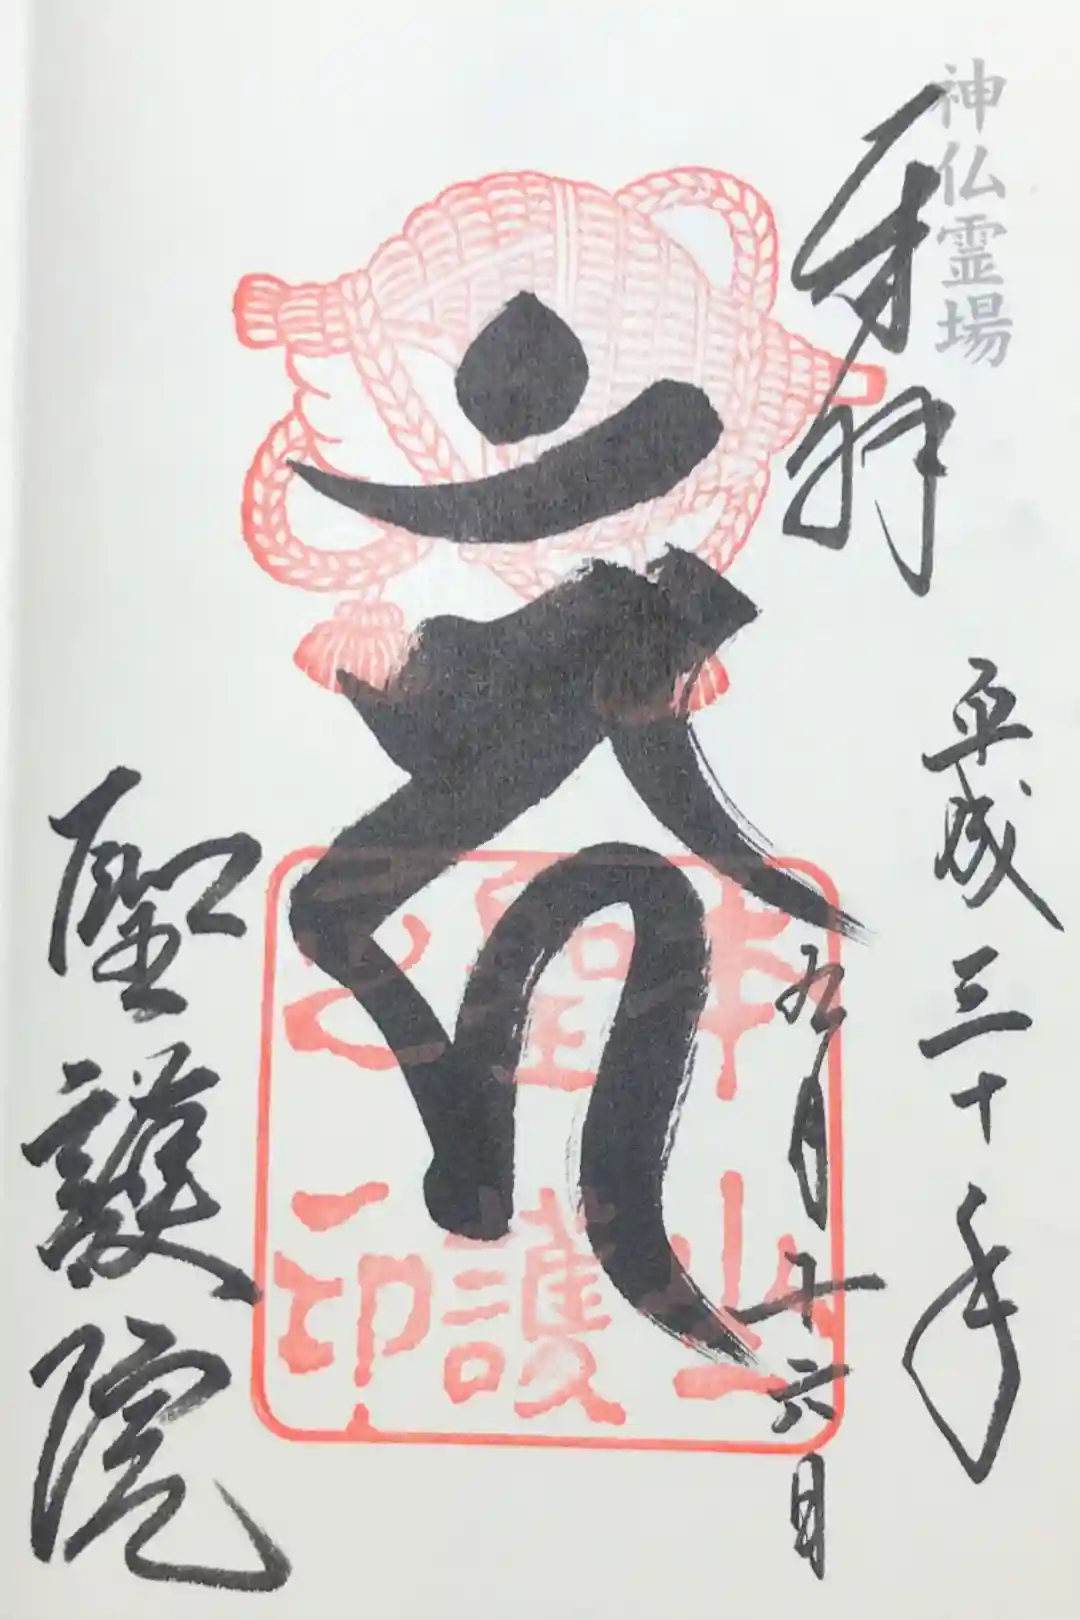 神仏霊場
奉拝
平成三十年
五月十六日
本山
聖護
之印
聖護院